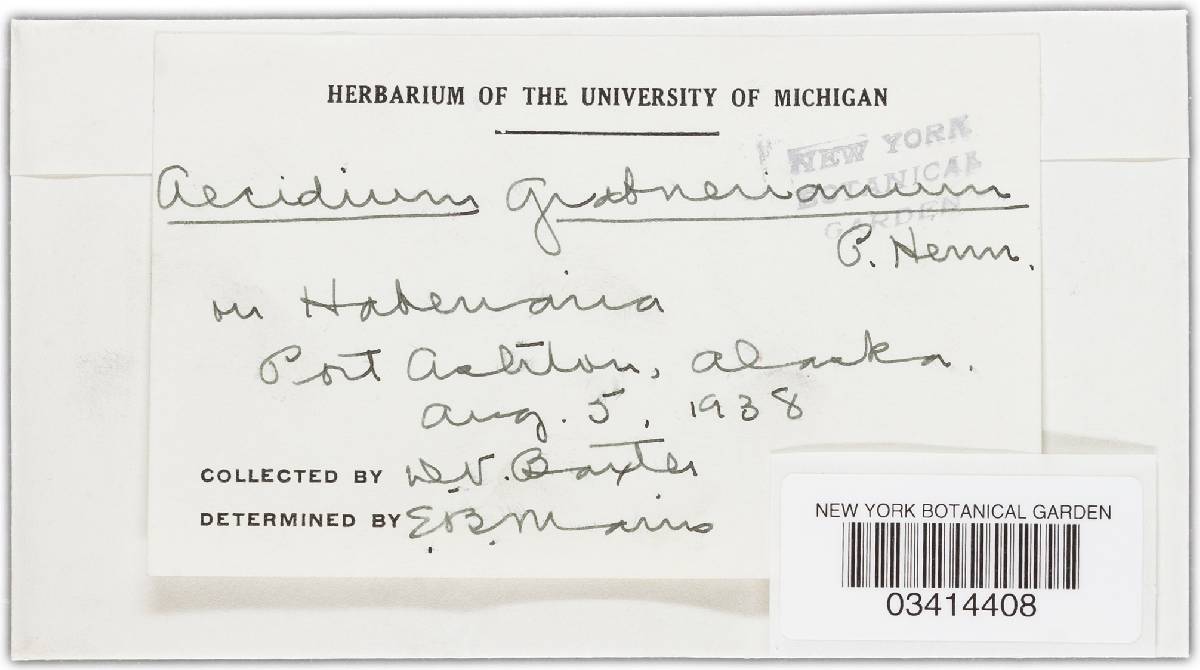 HERBARIUM OF THE UNIVERSITY OF MICHIGAN
NEW YORK
BOTANICAL
GARDEN
Aecidium graebnerianum
P. Henn.
on Habenaria
Port Ashton, Alaska.
Aug. 5, 1938
COLLECTED BY D.V. Baxter
DETERMINED BY E.B. Mains
NEW YORK BOTANICAL GARDEN
03414408